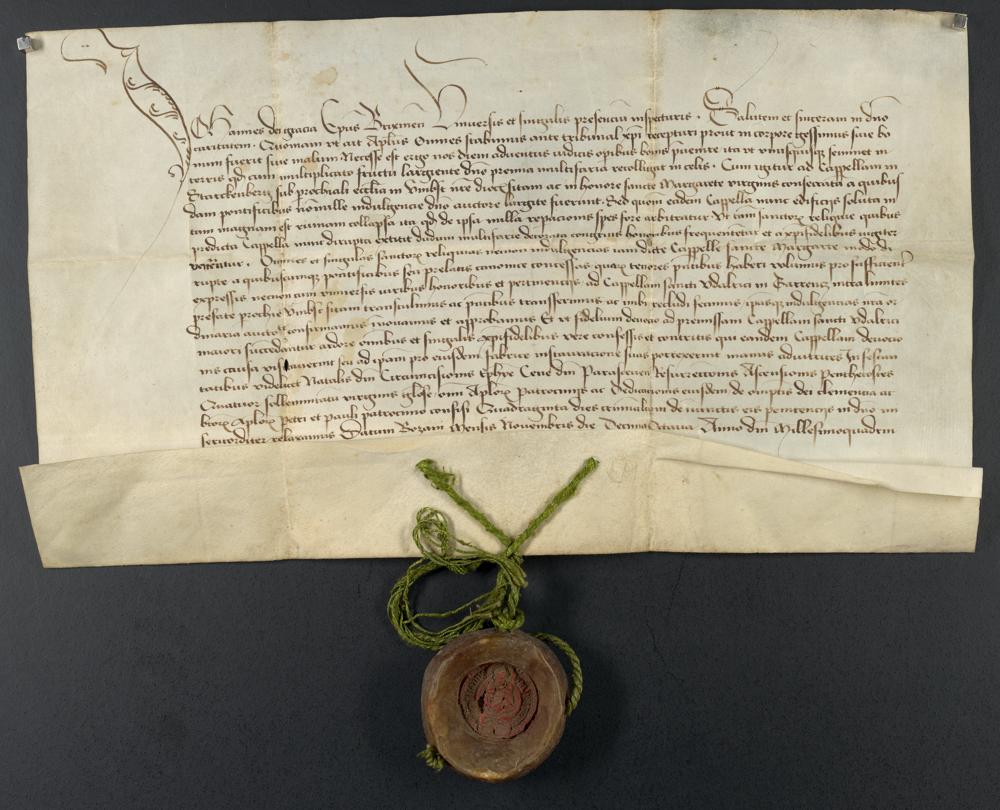 Johannes dei gracia Ep̄us Brixineñ Vniuersis et singulis presencia inspecturis . Salutem et sinceram in dn̄o
caritatem . Quoniam vt ait Ap̄lus Omnes stabimus ante tribunal xp̄i recepturi prout in corpore gessimus siue bo
num fuerit siue malum Necesse est ergo nos diem aduentus iudicis op̄ibus bonis p̄uenire ita vt vnusquisq; seminet in
terris qd̄ cum multiplicato fructu largiente dn̄o premia multifaria recolligat in celis . Cum igitur ad Cappellam in
Starckenberg sub prochiali eccl̄ia in Vmbst nr̄e dioc̄ sitam ac in honore sancte Margarete virginis consecratā a quibus
dam pontificibus nōnulle indulgencie dn̄o auctore largite fuerint . Sed quoniam eadem Cappella nunc edificijs soluta in
tam magnam est ruinam collapsa ita qd̄ de ipsa nulla reparacionis spes fore arbitratur Vt tam sanctoꝝ reliquie quibus
predicta Cappella nunc dirupta
 congruis honoribus frequentetur et a xp̄ifidelibus iugiter
venerētur . Omnes et singulas sanctoꝝ reliquias necnon indulgencias iamdicte Cappelle sancte Margarete modo di
rupte a quibuscumq; pontificibus seu prelatis canonice concessas quaꝝ tenores pn̄tibus haberi volumus pro sufficienē
expressis necnon cum vniuersis iuribus honoribus et pertinencijs ad Cappellam sancti Vdalrici in Tarrentz intra limites
prefate prochie Vmbst sitam transtulimus ac pn̄tibus transferimus ac inibi recludi fecimus ipasq; indulgencias nr̄a or
dinaria auctōte confirmamus innouamus et approbamus Et vt fidelium deuocio ad premissam Cappellam sancti Vdalrici
maiori succedantur ardore omnibus et singulis xp̄ifidelibus vere confessis et contritis qui eandem Cappellam deuocio
nis causa visitauerint seu ad ip̄am pro eiusdem fabrice instauracione suas porrexerint manus adiutrices In festiui
tatibus videlicet Natalis dn̄i Circumcisionis Ephy̅e Cene dn̄i Parasceuen Resurrectionis Ascensionis Penthecostes
Quatuor sollemnitatū virginis gl̄ose om̄ Ap̄loꝝ Patrocinijs ac Dedicacionis eiusdem de om̄ptis dei clementia ac
b̄toꝝ Ap̄loꝝ Petri et Pauli patrocinio confisi Quadraginta dies criminalium de iniunctis eis penitencijs in dn̄o mi
sericorditer relaxamus Datum Bozani Mensis Nouembris die Decimaoctaua Anno dn̄i Millesimoquadrin